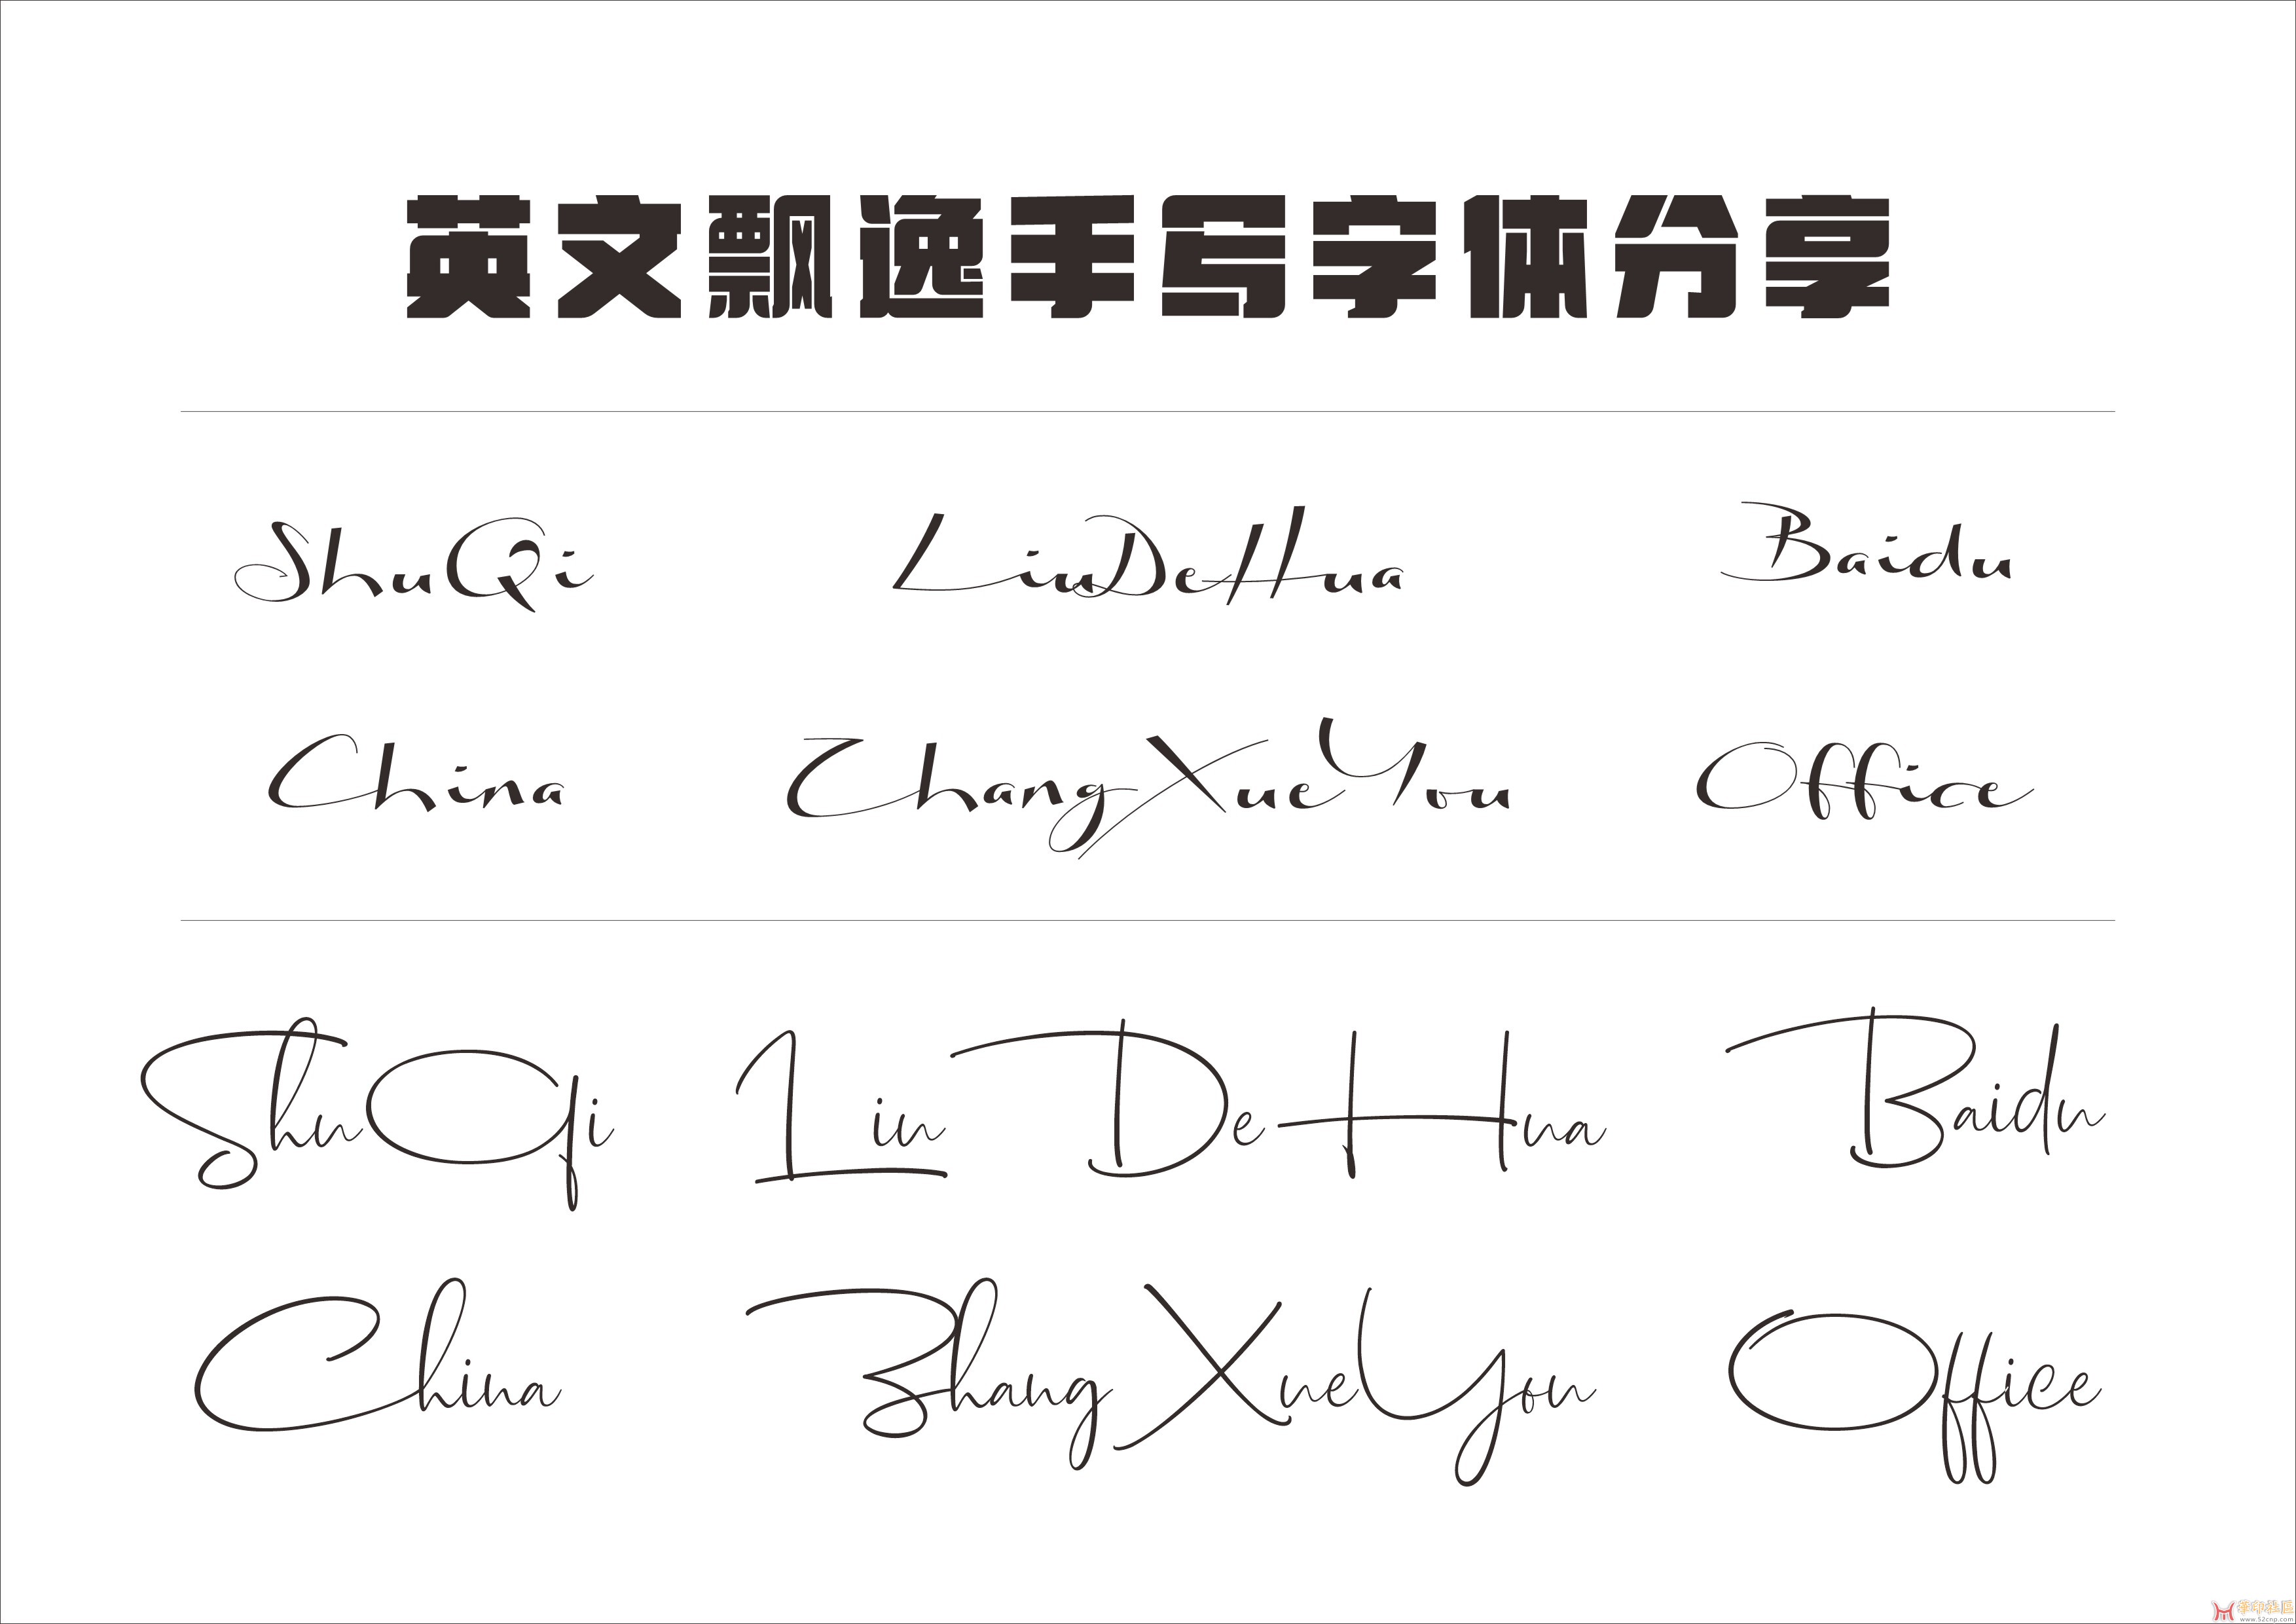 英文飘逸手写字体分享
ShuQi LiuDeHua Baidu
China ZhangXueYou Office
ShuQi LiuDeHua Baidu
China ZhangXueYou Office
华印社区
www.52cnp.com